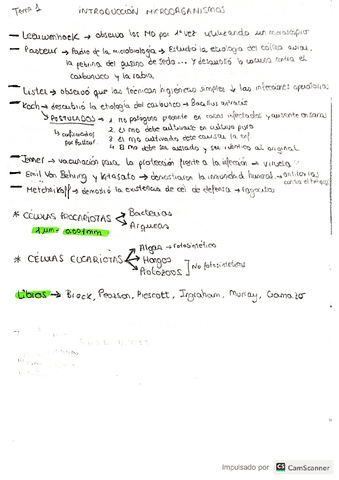 Tema 1 INTRODUCCIÓN MICROORGANISMOS
— Leeuwenhoek → observa los MO por 1ª vez utilizando un microscopio
— Pasteur → Padre de la microbiología → Estudió la etiología del cólera aviar,
la pebrina del gusano de seda... y desarrolló la vacuna contra el
carbunco y la rabia
— Lister → observó que las técnicas higiénicas simples ↓ las infecciones operatorias
— Koch → descubrió la etiología del carbunco → Bacillus antracis
↳ POSTULADOS → 1. mo patógeno presente en casos infectados y ausente en sanos
↳ confirmados por Pasteur
2. El mo debe cultivarse en cultivo puro
3. El mo cultivado debe causar la enf.
4. El MO debe ser aislado y ser idéntico al original
— Jenner → vacunación para la protección frente a la infección → viruela
— Emil Von Behring y Kitasato → demostraron la inmunidad humoral → antitoxinas
— Metchnikoff → demostró la existencia de cél de defensa → fagocitos
* CÉLULAS PROCARIOTAS → Bacterias
→ Arqueas
1 µm = 0,001 mm
* CÉLULAS EUCARIOTAS → Algas → fotosintética
→ Hongos
→ Protozoos ] No fotosintéticos
Libros → Brock, Pearson, Prescott, Ingraham, Murray, Gamazo
Impulsado por CS CamScanner